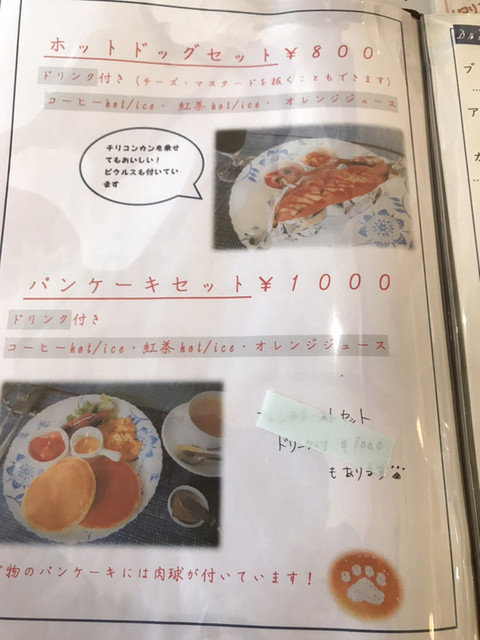 ホットドッグセット ¥800
ドリンク付き (チーズ・マスタードを抜くこともできます)
コーヒーhot/ice・紅茶hot/ice・オレンジジュース
チリコンカンを乗せ
てもおいしい!
ピクルスも付いていま
す
パンケーキセット ¥1000
ドリンク付き
コーヒーhot/ice・紅茶hot/ice・オレンジジュース
セット
ドリ ¥1000
もあります
物のパンケーキには肉球が付いています!
ブ
ア